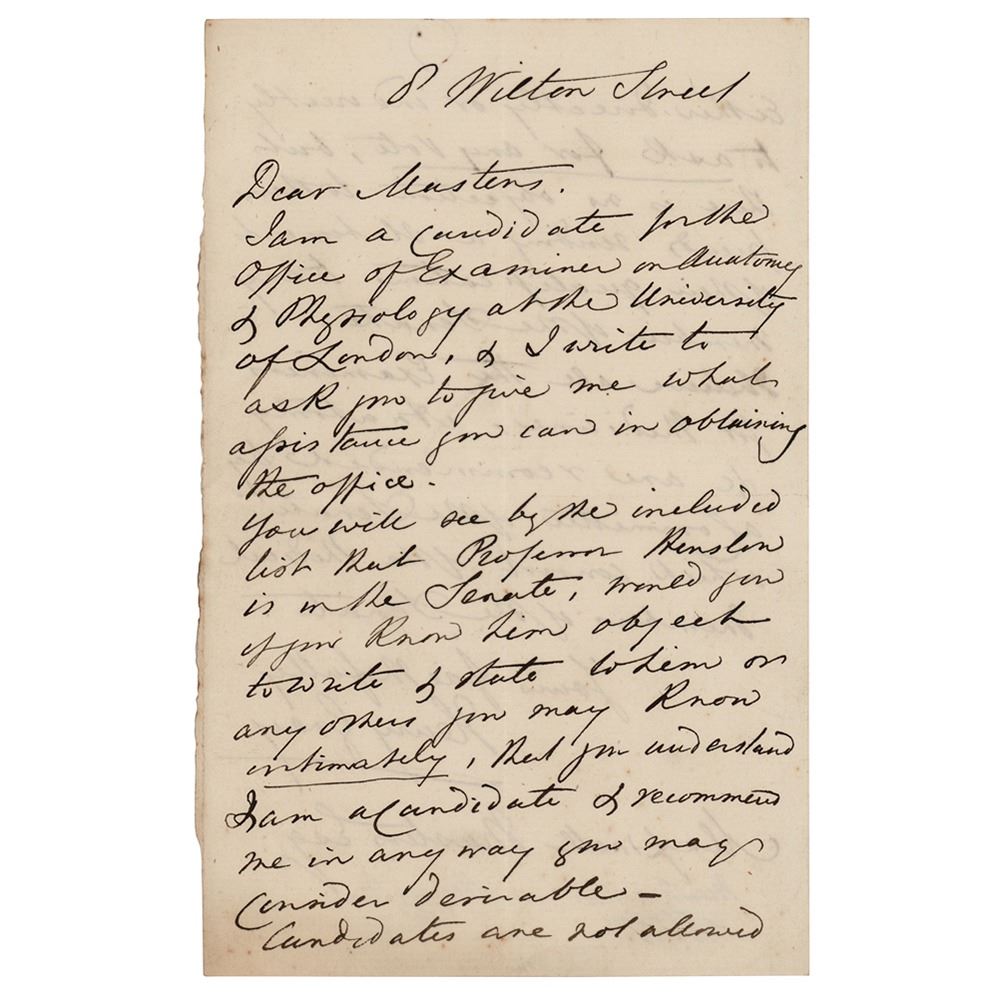 8 Wilton Street
Dear Masters.
I am a Candidate for the
Office of Examiner on Anatomy
& Physiology at the University
of London, & I write to
ask you to give me what
assistance you can in obtaining
the office.
You will see by the included
list that Professor Henslow
is in the Senate, would you
if you know him object
to write & state to him or
any others you may know
intimately, that you understand
I am a Candidate & recommend
me in any way you may
Consider desirable —
Candidates are not allowed